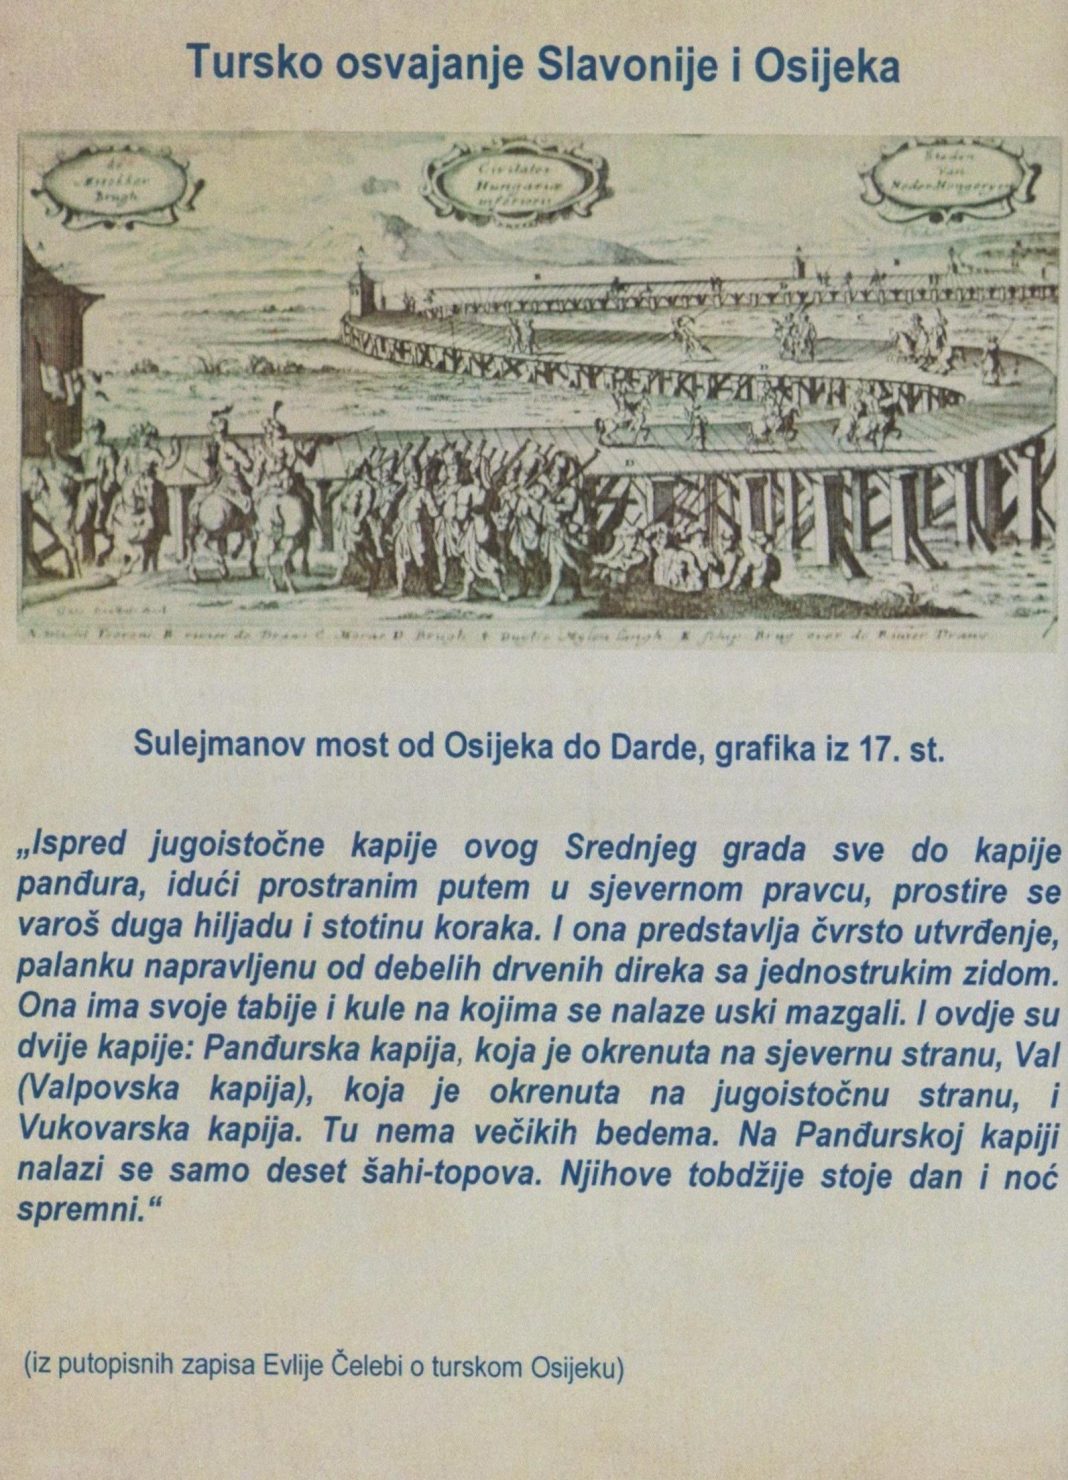 Tursko osvajanje Slavonije i Osijeka
de
Brugh
Civitates
Hungariæ
inferioris
Steden
van
Neder Hongeryen
Sulejmanov most od Osijeka do Darde, grafika iz 17. st.
„Ispred jugoistočne kapije ovog Srednjeg grada sve do kapije
panđura, idući prostranim putem u sjevernom pravcu, prostire se
varoš duga hiljadu i stotinu koraka. I ona predstavlja čvrsto utvrđenje,
palanku napravljenu od debelih drvenih direka sa jednostrukim zidom.
Ona ima svoje tabije i kule na kojima se nalaze uski mazgali. I ovdje su
dvije kapije: Panđurska kapija, koja je okrenuta na sjevernu stranu, Val
(Valpovska kapija), koja je okrenuta na jugoistočnu stranu, i
Vukovarska kapija. Tu nema večikih bedema. Na Panđurskoj kapiji
nalazi se samo deset šahi-topova. Njihove tobdžije stoje dan i noć
spremni.“
(iz putopisnih zapisa Evlije Čelebi o turskom Osijeku)